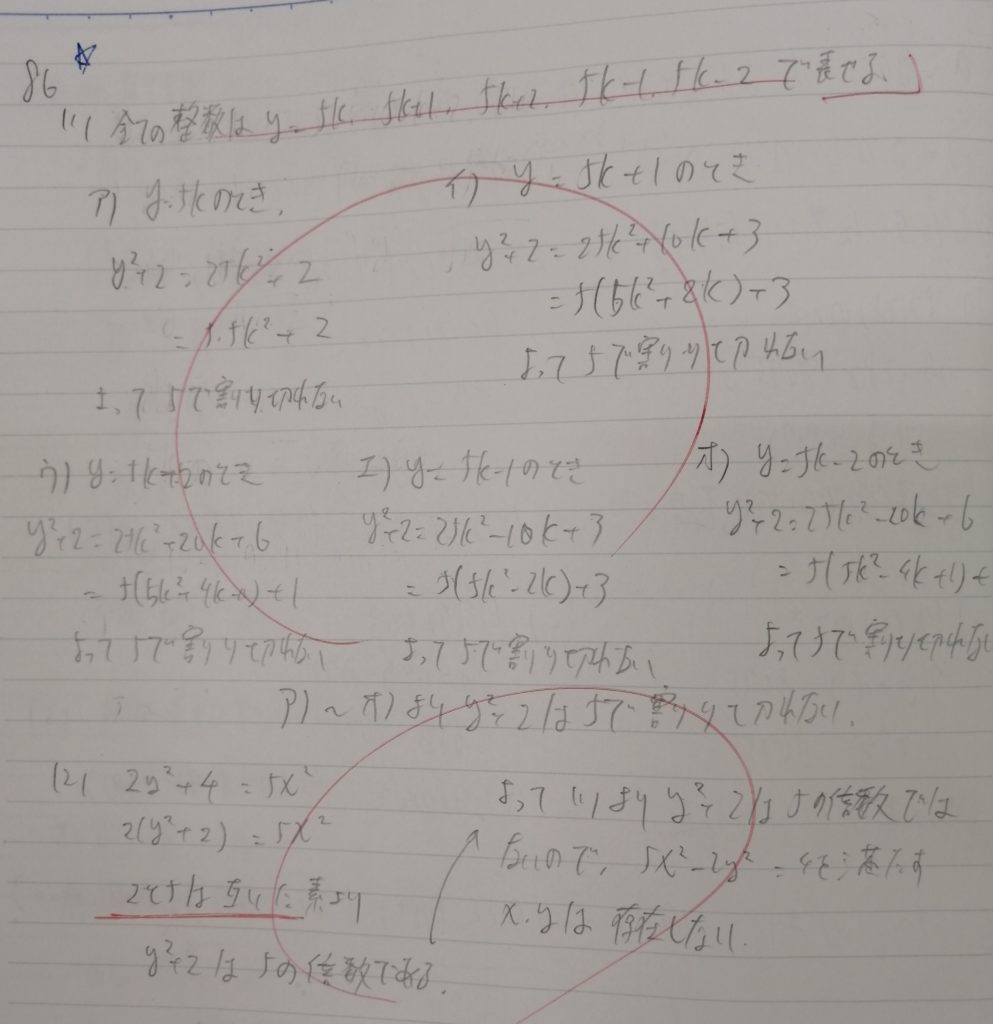 86 ☆
(1) 全ての整数は y=5k, 5k+1, 5k+2, 5k-1, 5k-2 で表せる。
ア) y=5kのとき,
y²+2=25k²+2
=5・5k²+2
よって5で割りきれない
イ) y=5k+1のとき
y²+2=25k²+10k+3
=5(5k²+2k)+3
よって5で割りきれない
ウ) y=5k+2のとき
y²+2=25k²+20k+6
=5(5k²+4k+1)+1
よって5で割りきれない
エ) y=5k-1のとき
y²+2=25k²-10k+3
=5(5k²-2k)+3
よって5で割りきれない
オ) y=5k-2のとき
y²+2=25k²-20k+6
=5(5k²-4k+1)+
よって5で割りきれない
ア)～オ)より y²+2は5で割りきれない.
(2) 2y²+4=5x²
2(y²+2)=5x²
2と5は互いに素より
y²+2は5の倍数である.
よって(1)より y²+2は5の倍数では
ないので, 5x²-2y²=4を満たす
x,yは存在しない.